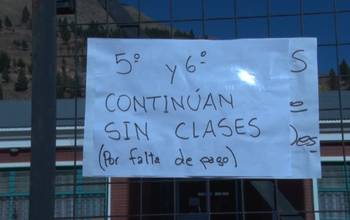 5º y 6º
CONTINÚAN
SIN CLASES
(Por falta de pago)